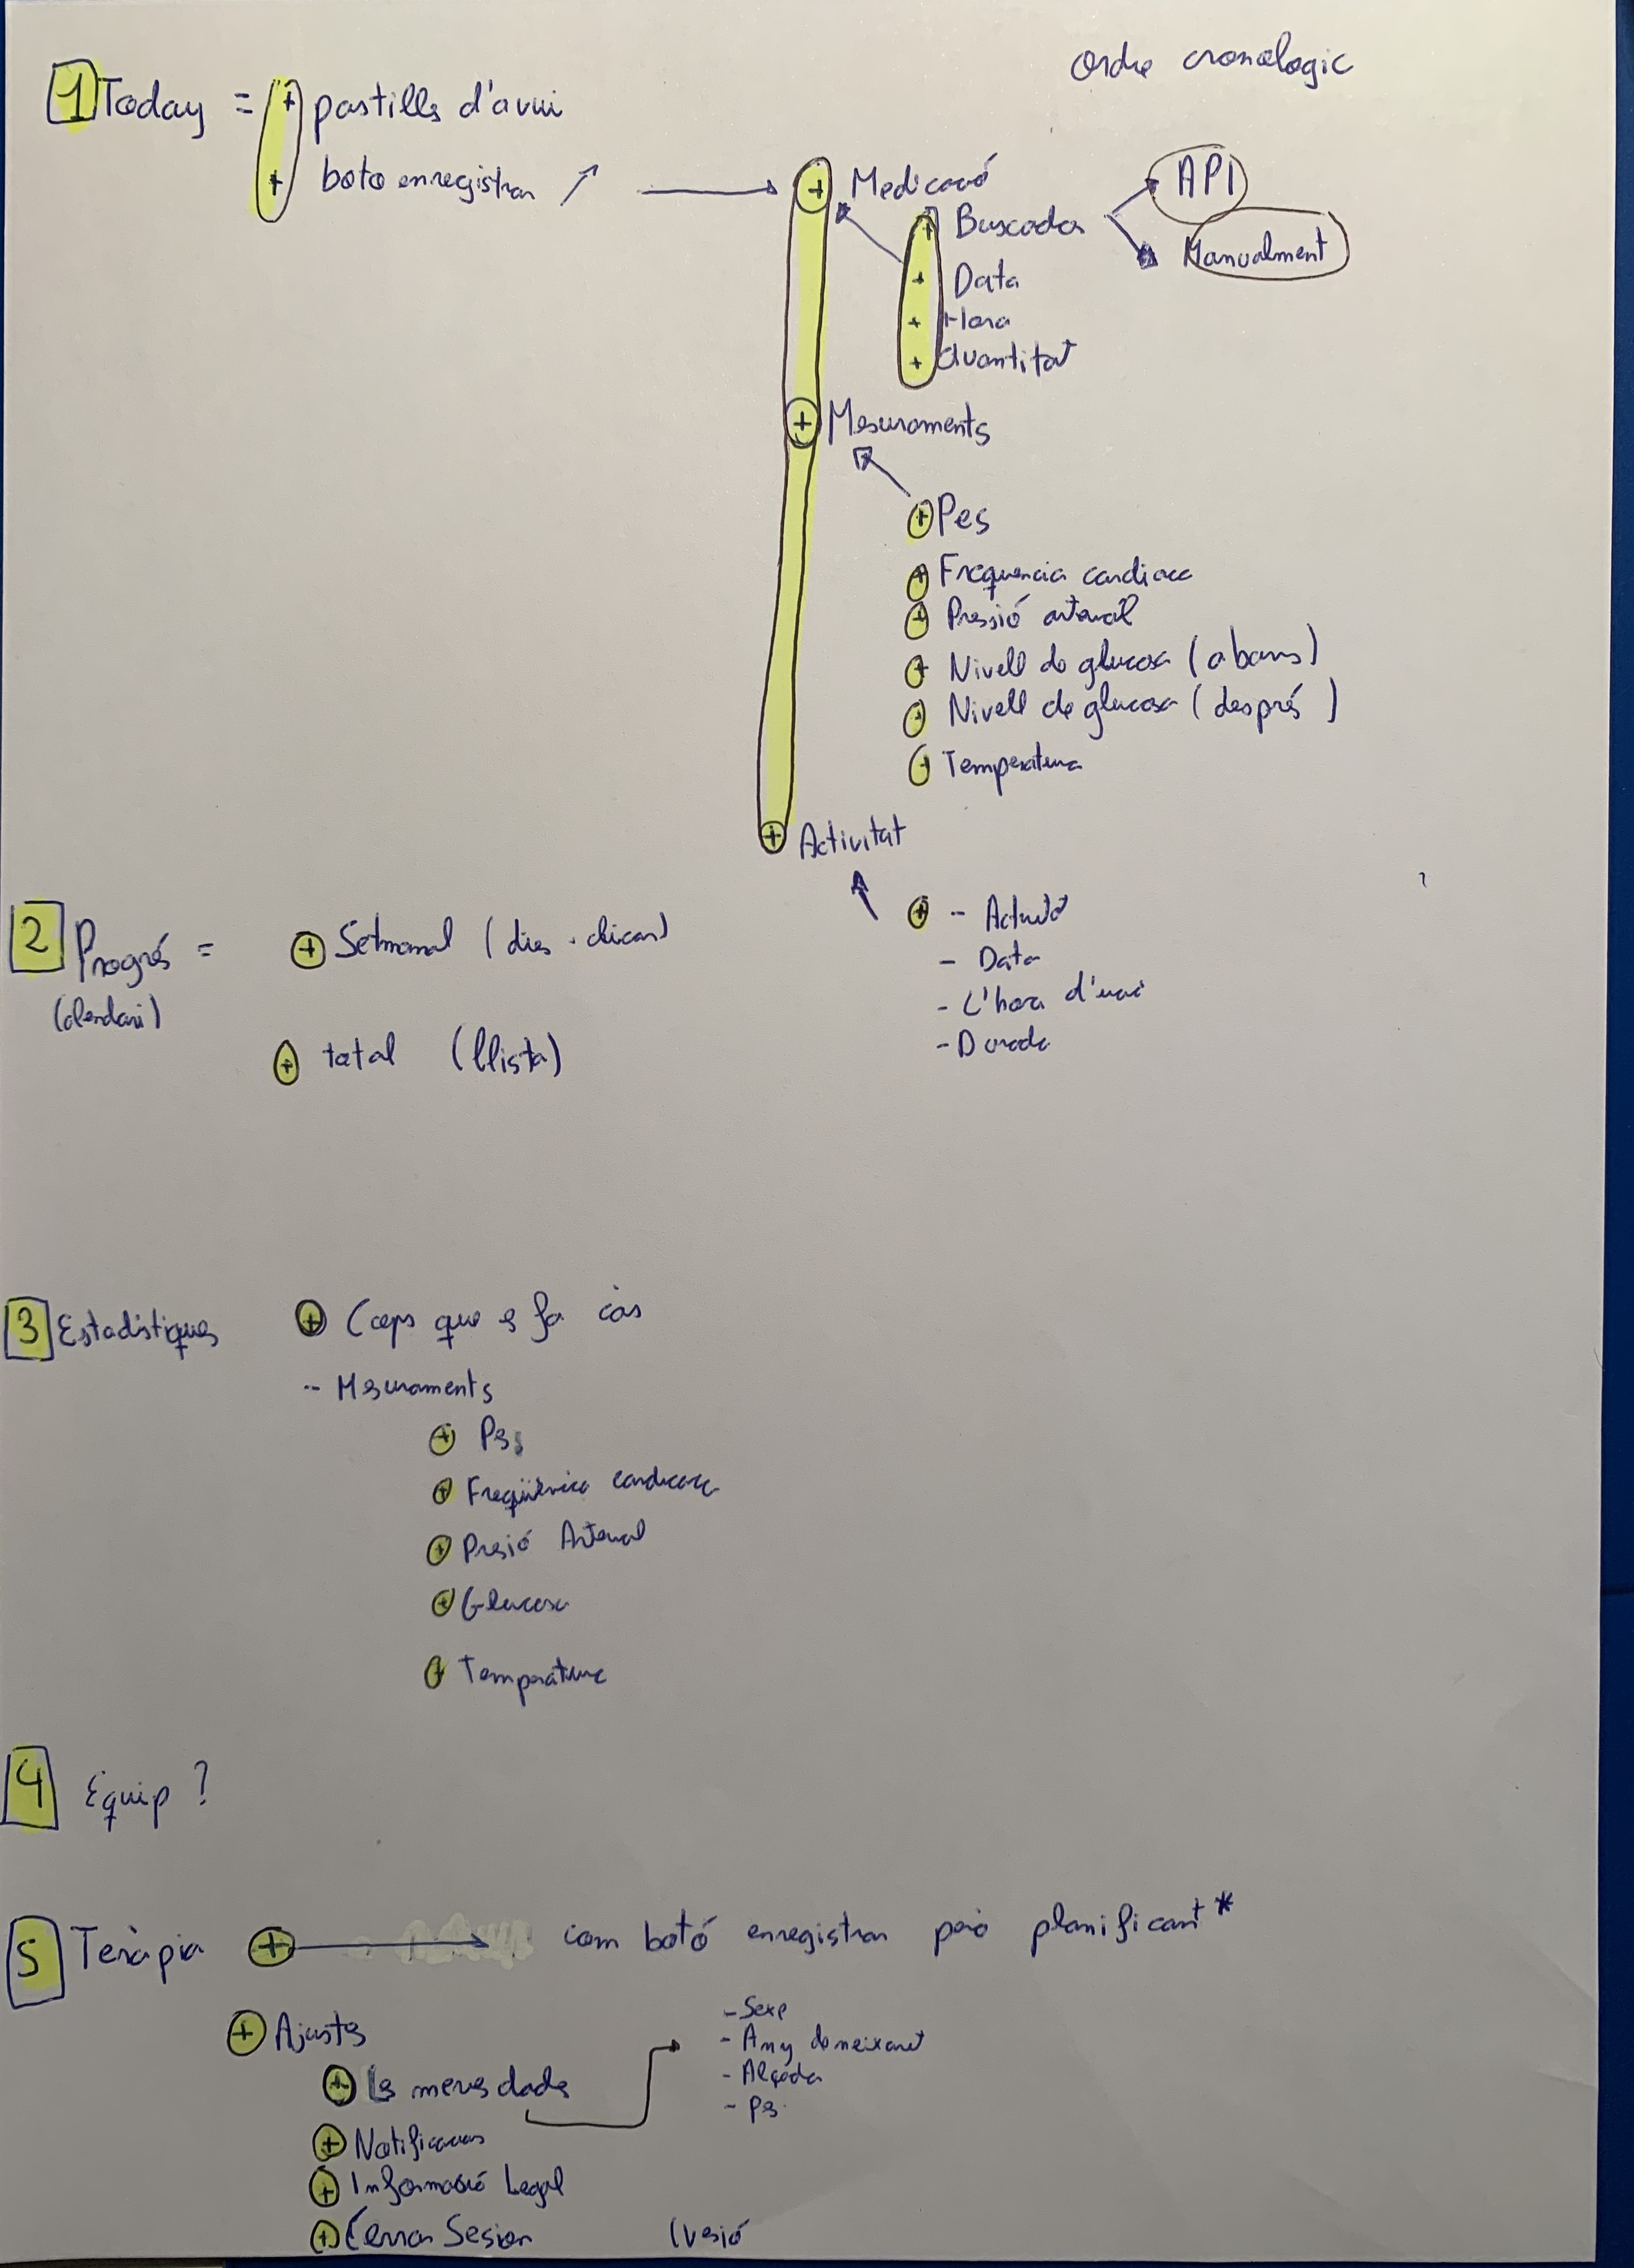 Ordre cronologic
1 Today = + pastilles d'avui
+ boto enregistrar
+ Medicació
+ Buscador
API
Manualment
+ Data
+ Hora
+ Quantitat
+ Mesuraments
+ Pes
+ Frequencia cardiaca
+ Pressió arterial
+ Nivell de glucosa (abans)
+ Nivell de glucosa (després)
+ Temperatura
+ Activitat
+ - Activitat
- Data
- L'hora d'inici
- Durada
2 Progrés = + Setmanal (dies
(calendari)
+ total (llista)
3 Estadístiques + Cops que es fa cas
-- Mesuraments
+ Pes
+ Freqüència cardiaca
+ Presió Arterial
+ Glucosa
+ Temperatura
4 Equip ?
5 Teràpia + com botó enregistrar però planificant *
+ Ajustes
+ Les meves dades
- Sexe
- Any de neixament
- Alçada
- Pes
+ Notificacions
+ Informació Legal
+ Cerrar Sesion (Vesió